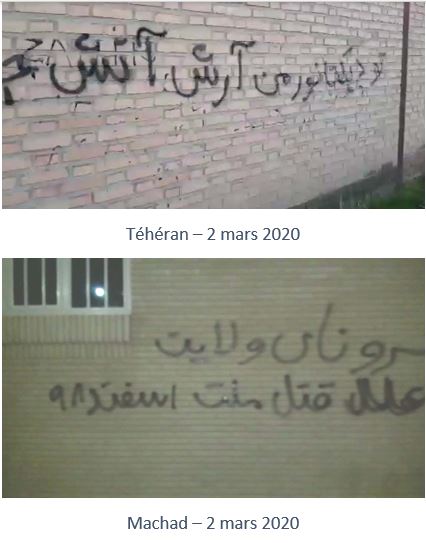 تو دیکتاتور من آرش آتش
Téhéran – 2 mars 2020
کرونای ولایت
عامل قتل ملت اسفند ۹۸
Machad – 2 mars 2020